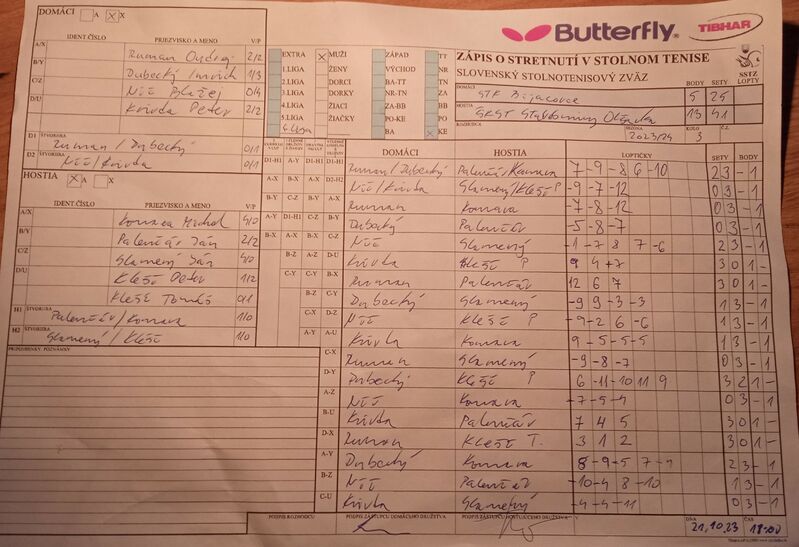 DOMÁCI A X
IDENT. ČÍSLO PRIEZVISKO A MENO V/P
A/X Ruman Ondrej 2/2
B/Y Dubecký 1/3
C/Z Nič Blažej 0/4
D/U Krivda Peter 2/2
D1 ŠTVORHRA Ruman/Dubecký 0/1
D2 ŠTVORHRA Nič/Krivda 0/1
HOSTIA A X
IDENT. ČÍSLO PRIEZVISKO A MENO V/P
A/X Konrava Michal 4/0
B/Y Palenčár Ján 2/2
C/Z Slamený Ján 4/0
D/U Klešč Peter 1/2
Klešč Tomáš 0/1
H1 ŠTVORHRA Palenčár/Konrava 1/0
H2 ŠTVORHRA Slamený/Klešč 1/0
PRIPOMIENKY POZNÁMKY
Butterfly
TIBHAR
EXTRA X MUŽI ZÁPAD TT
1.LIGA ŽENY VÝCHOD NR
2.LIGA DORCI BA-TT
3.LIGA DORKY NR-TN ZA
4.LIGA ŽIACI ZA-BB BB
5.LIGA ŽIAČKY PO-KE PO
4. liga BA X KE
ZÁPIS O STRETNUTÍ V STOLNOM TENISE
SLOVENSKÝ STOLNOTENISOVÝ ZVÄZ
SSTZ
BODY SETY LOPTY
DOMÁCI STK Bijacovce 5 25
HOSTIA ŠKST 13 41
ROZHODCA SEZONA 2023/24 KOLO 3 Č.
DOMÁCI HOSTIA LOPTIČKY SETY BODY
D1-H1 Ruman/Dubecký Palenčár/Konrava 7 -9 -8 6 -10 2 3 - 1
D2-H2 Nič/Krivda Slamený/Klešč P -9 -7 -12 0 3 - 1
A-X Ruman Konrava -7 -8 -12 0 3 - 1
B-Y Dubecký Palenčár -5 -8 -7 0 3 - 1
C-Z Nič Slamený -1 -7 8 7 -6 2 3 - 1
D-U Krivda Klešč P 9 4 7 3 0 1 -
B-X Ruman Palenčár 12 6 7 3 0 1 -
Dubecký Slamený -9 9 -3 -3 1 3 - 1
Nič Klešč P -9 -2 6 -6 1 3 - 1
Krivda Konrava 9 -5 -5 -5 1 3 - 1
C-X Ruman Slamený -9 -8 -7 0 3 - 1
D-Y Dubecký Klešč P 6 -11 -10 11 9 3 2 1 -
A-Z Nič Konrava -7 -5 -4 0 3 - 1
B-U Krivda Palenčár 7 4 5 3 0 1 -
D-X Ruman Klešč T. 3 1 2 3 0 1 -
A-Y Dubecký Konrava 8 -9 -5 7 -9 2 3 - 1
B-Z Nič Palenčár -10 -4 8 -10 1 3 - 1
C-U Krivda Slamený -4 -4 -11 0 3 - 1
PODPIS ROZHODCU PODPIS ZÁSTUPCU DOMÁCEHO DRUŽSTVA PODPIS ZÁSTUPCU HOSŤUJÚCEHO DRUŽSTVA DŇA 21.10.23 ČAS